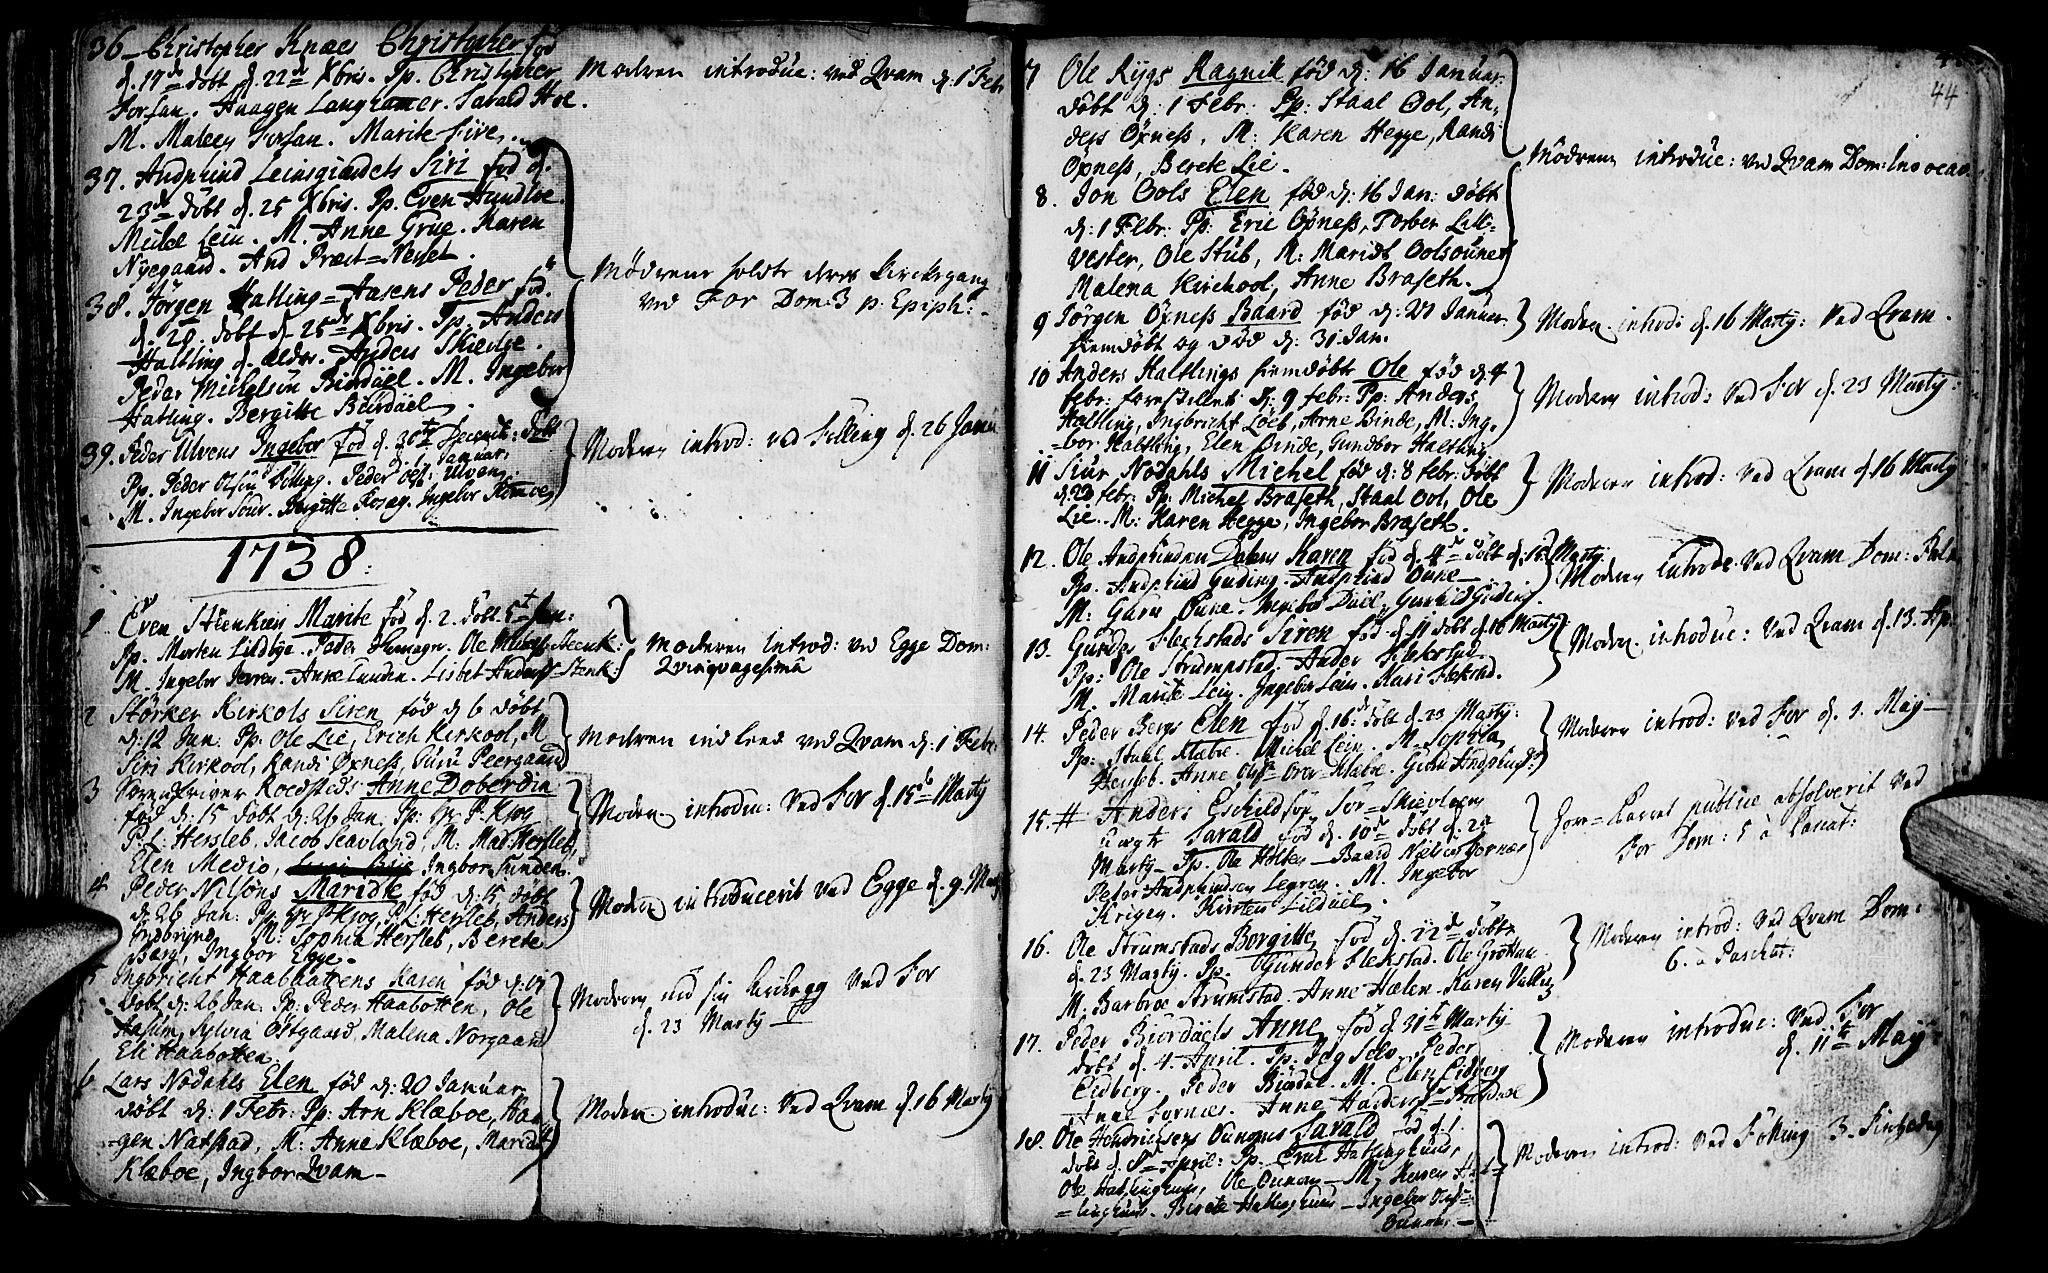 36_ Christopher Knæs Christopher fød
d. 17de døbt d. 22de Xbris. Pp. Christopher
Forsan. Haagen Langhamer. Tarald Hoe.
M. Maleen Forsan. Marite Five.
Modren introduc: ved Qvam d. 1 Febr
37. Andphind Leinsgrandets Siri fød d.
23de døbt d. 25 Xbris. Pp. Even Hundloe.
Mickel Lein. M. Anne Grue. Karen
Nygaard. And Præst=Nesset.
38. Jørgen Hatling=Aasens Peder fød.
d. 20. døbt d. 25de Xbris. Pp. Anders
Hatling d. eldre. Anders Skiedje.
Peder Michelsen Biördael. M. Ingebor
Hatling. Bergitte Biördael.
Mödrene holdte deres Kirckegang
ved For Dom: 3 p. Epiph:
39. Peder Ulvens Ingebor fød d. 30te Decemb: døbt
Januar.
Pp. Peder Olsen Følling. Peder Ols: Ulven.
M. Ingebor Sour. Bergitte Rosæg. Ingebor
Moderen introd: ved Følling d. 26 Janu
1738.
1 Even Steenkiers Marite fød d. 2. døbt 5t Jan:
Pp. Morten Lildbye. Peder Hemagr. Ole Steenk:
M. Ingebor Jerren. Anne Lunden. Lisbet Anders Stenk:
Moderen introd: ved Egge Dom:
Qvinqvagesima
2 Störker Kirkols Siren fød d. 6 døbt
d: 12 Jan: Pp: Ole Lie, Erich Kirkool, M
Siri Kirkool, Randi Øxness, Guru Peergaard
Modren indleed ved Qvam d: 1 Febr:
3 Sorenskriver Roedsteds Anne Doberdin
fød d: 15 døbt d: 26 Jan: Pp: Hr P. Kjøg
P. L: Hersleb, Jacob Seavland, M: Mad: Hersleb,
Elen Medio, Ingbor Sunden.
Moderen introduc: Ved For d. 15de Marty
4 Peder Nilsøns Maridte fød d: 15 døbt
d: 26 Jan: Pp: Hr P Kjøg, P. L: Hersleb, Anders
Indbryn, M: Sophia Hersleb, Berete
Berg, Ingbor Egge.
Moderen introducerit ved Egge d. 9. Marty
5 Ingbricht Haabaattens Karen fød d: 19
døbt d: 26 Jan: Pp: Peder Haabotten, Ole
Aasum, Sylvia Östgaard, Malena Norgaard
Eli Haabotten.
Moderen ved sin kirckegg Ved For
d. 23 Marty
6 Lars Nødahls Elen fød d: 20 Januar,
døbt d: 1 Febr: Pp: Arn Klæboe, Haa
gen Natstad, M: Anne Klæboe, Maridt
Klæboe, Ingbor Qvam_
Moderen introduc: Ved Qvam d. 16 Marty
44
7 Ole Rygs Ragnil fød d: 16 Januar:
døbt d: 1 Febr: Pp: Staal Ool, An-
ders Öxness, M: Karen Hegge, Randi
Öxness, Berete Lie.
8. Jon Ools Elen fød d: 16 Jan: døbt
d: 1 Febr: Pp: Eric Öxness, Torber Lill-
vester, Ole Stub, M: Maridt Oolsouner
Malena Kirchool, Anne Braseth.
Mödrene introduc: ved Qvam Dom: Invocav.
9 Jörgen Öxness Baard fød d: 27 Januar.
hiemdøbt og død d: 31 Jan.
Moderen introd: d. 16 Marty: Ved Qvam.
10 Anders Haltlings hiemdøbte Ole fød d. 4
febr: forestillet d: 9 febr: Pp: Anders
Haltling, Ingbricht Löeb, Arne Binde, M: Ing-
bor Haltling, Elen Binde, Gundbor Haltling
Moderen introd: Ved For d. 23 Marty:
11 Siur Nodahls Michel fød d: 8 febr: døbt
d: 23 febr: Pp: Michel Braseth, Staal Ool, Ole
Lie. M: Karen Hegge, Ingebor Braseth.
Moderen introd: Ved Qvam d. 16 Marty
12. Ole Andphindsen Dalens Karen fød d. 4de døbt d. 15de Marty:
Pp. Andphind Guding. Andphind Oune_
M: Guru Oune. Ingebor Dael. Gunhild Guding
Moderen Introd: Ved Qvam Dom: Palm
13. Gunder Flechstads Siren fød d. 11 døbt d. 16 Marty:
Pp: Ole Strumpstad. Ander Flekstad
M. Marite Lein. Ingebor Lein. Kari Flekstad.
Moder introduc: Ved Qvam d. 13. Ap.
14. Peder Bergs Elen fød d. 16: døbt d. 23 Marty:
Pp: Staal Klæbr. Mickel Lein. M. Sophia
Hersleb. Anne Olsr Over=Klæbr. Guru Andphindsd:
Moderen introd: Ved For d. 1. May
15. # Anders Eschildsøn For=Skievleens
uægte Tarald fød d. 10de døbt d. 23
Marty. Pp. Ole Holten_ Baard Nielsen Fornæs
Peder Andphindsen Legren. M. Ingebor
Krigen. Kirsten Lildael.
Hore=Barnet publice absolverit Ved
For Dom: 5 à Pascat:
16. Ole Strumstads Bergitte fød d. 22de døbt
d. 23 Marty. Pp. Gunder Flekstad. Ole Grøttan
M. Barbroe Strumstad. Anne Hælen. Karen Valum
Moderen introd: Ved Qvam Dom:
6. à Paschat:
17. Peder Biördaels Anne fød d. 31te Marty
døbt d. 4. April. Pp. Jeg Selv. Peder
Eidberg. Peder Biördal. M. Elen Eidberg
Anne Fornæs. Anne Halders
Moderen introduc: Ved For
d. 11te Maij
18. Ole Hendricksens Ounoms Tarald fød d. 1.
døbt d. 8de April: Pp. Hallinghuus,
Ole Hallinghuus, Ole Ounom_ M. Karen Hal=
=linghuus. Berete Hallinghuus_ Ingebor
Ounoms_
Moderen introduc: Ved Følling 3. Pinsedag